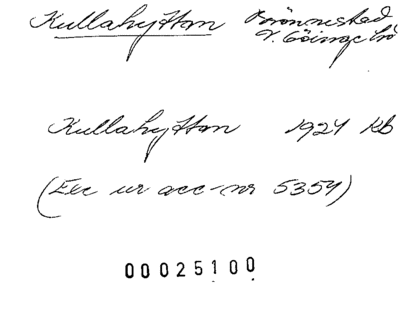 Kullahyttan Brönnestad
V. Göinge hd
Kullahyttan 1924 kb
(Exc ur acc-nr 5354)
00025100